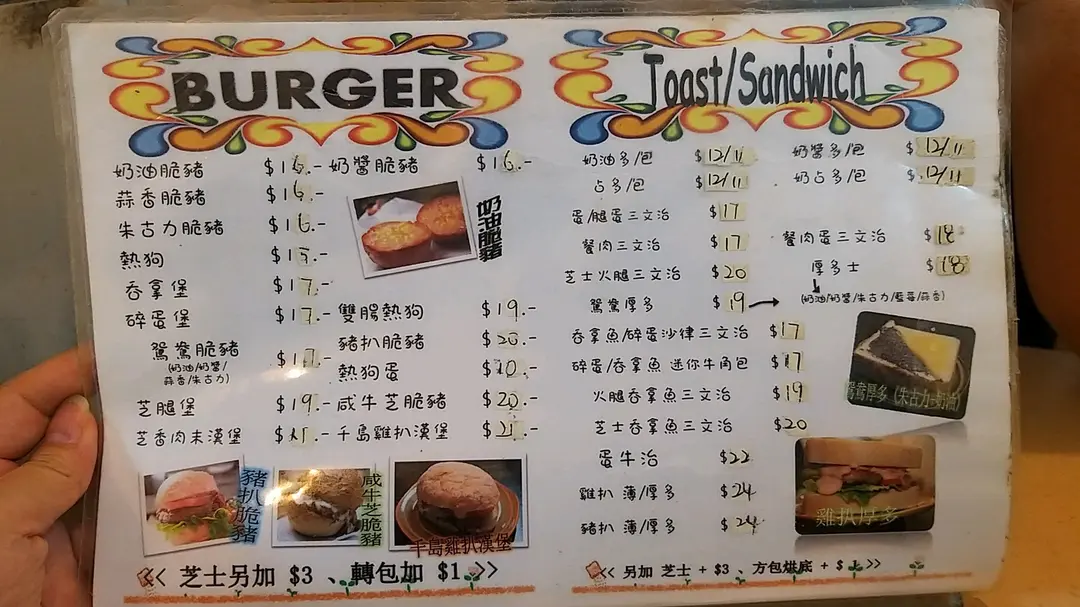 BURGER
奶油脆豬 $16.- 奶醬脆豬 $16.-
蒜香脆豬 $16.-
朱古力脆豬 $16.-
熱狗 $15.-
吞拿堡 $17.-
碎蛋堡 $17.- 雙腸熱狗 $19.-
鴛鴦脆豬 $17.- 豬扒脆豬 $20.-
(奶油/奶醬/
蒜香/朱古力)
熱狗蛋
芝腿堡 $19.- 咸牛芝脆豬 $20.-
芝香肉末漢堡 千島雞扒漢堡 $21.-
奶油脆豬
豬扒脆豬
咸牛芝脆豬
千島雞扒漢堡
<< 芝士另加 $3 、轉包加 $1 >>
Toast/Sandwich
奶油多/包 $12/11 奶醬多/包 $12/11
占多/包 $12/11 奶占多/包 $12/11
蛋/腿蛋三文治 $17
餐肉三文治 $17 餐肉蛋三文治 $18
芝士火腿三文治 $20 厚多士 $18
鴛鴦厚多 $19 (奶油/奶醬/朱古力/藍莓/蒜香)
吞拿魚/碎蛋沙律三文治 $17
碎蛋/吞拿魚 迷你牛角包 $17
火腿吞拿魚三文治 $19
芝士吞拿魚三文治 $20
蛋牛治 $22
雞扒 薄/厚多 $24
豬扒 薄/厚多 $24
鴛鴦厚多 (朱古力+奶油)
雞扒厚多
<< 另加 芝士 + $3 、方包烘底 + $ 1 >>